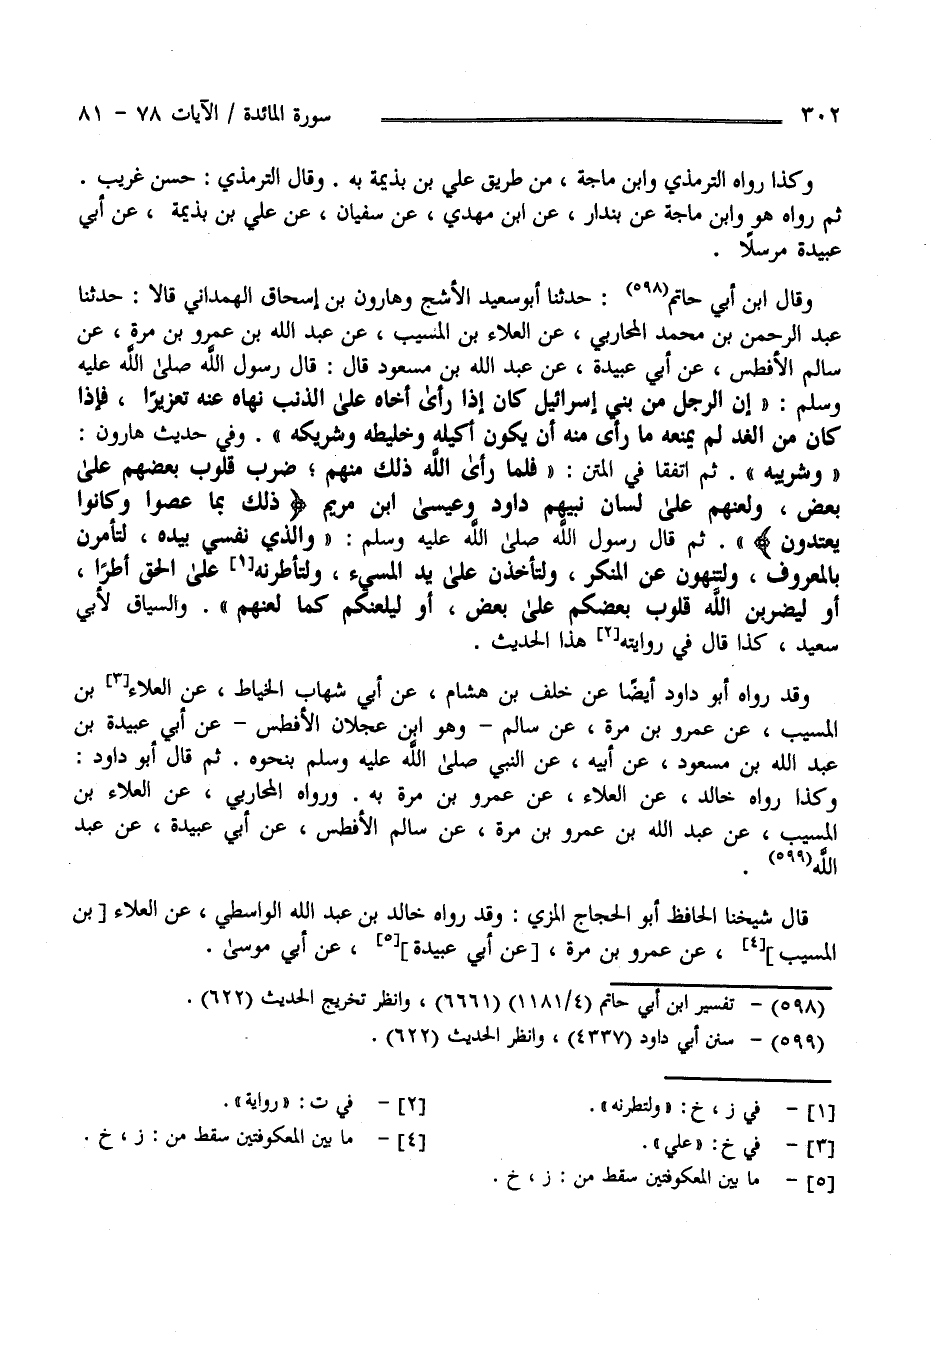 ٣٠٢ سورة المائدة / الآيات ٧٨ - ٨١
وكذا رواه الترمذي وابن ماجة ، من طريق علي بن بذيمة به . وقال الترمذي : حسن غريب .
ثم رواه هو وابن ماجة عن بندار ، عن ابن مهدي ، عن سفيان ، عن علي بن بذيمة ، عن أبي
عبيدة مرسلًا .
وقال ابن أبي حاتم(٥٩٨) : حدثنا أبوسعيد الأشج وهارون بن إسحاق الهمداني قالا : حدثنا
عبد الرحمن بن محمد المحاربي ، عن العلاء بن المسيب ، عن عبد الله بن عمرو بن مرة ، عن
سالم الأفطس ، عن أبي عبيدة ، عن عبد الله بن مسعود قال : قال رسول اللَّه صلىٰ اللَّه عليه
وسلم : « إن الرجل من بني إسرائيل كان إذا رأىٰ أخاه علىٰ الذنب نهاه عنه تعزيرًا ، فإذا
كان من الغد لم يمنعه ما رأى منه أن يكون أكيله وخليطه وشريكه » . وفي حديث هارون :
« وشريبه » . ثم اتفقا في المتن : « فلما رأىٰ اللَّه ذلك منهم ؛ ضرب قلوب بعضهم علىٰ
بعض ، ولعنهم علىٰ لسان نبيهم داود وعيسىٰ ابن مريم ﴿ ذلك بما عصوا وكانوا
يعتدون ﴾ » . ثم قال رسول اللَّه صلىٰ اللَّه عليه وسلم : « والذي نفسي بيده ، لتأمرن
بالمعروف ، ولتنهون عن المنكر ، ولتأخذن علىٰ يد المسيء ، ولتأطرنه[١] علىٰ الحق أطرًا ،
أو ليضربن اللَّه قلوب بعضكم علىٰ بعض ، أو ليلعنكم كما لعنهم » . والسياق لأبي
سعيد ، كذا قال في روايته[٢] هذا الحديث .
وقد رواه أبو داود أيضًا عن خلف بن هشام ، عن أبي شهاب الخياط ، عن العلاء[٣] بن
المسيب ، عن عمرو بن مرة ، عن سالم - وهو ابن عجلان الأفطس - عن أبي عبيدة بن
عبد الله بن مسعود ، عن أبيه ، عن النبي صلىٰ اللَّه عليه وسلم بنحوه . ثم قال أبو داود :
وكذا رواه خالد ، عن العلاء ، عن عمرو بن مرة به . ورواه المحاربي ، عن العلاء بن
المسيب ، عن عبد الله بن عمرو بن مرة ، عن سالم الأفطس ، عن أبي عبيدة ، عن عبد
اللَّه(٥٩٩) .
قال شيخنا الحافظ أبو الحجاج المزي : وقد رواه خالد بن عبد الله الواسطي ، عن العلاء [ بن
المسيب ][٤] ، عن عمرو بن مرة ، [ عن أبي عبيدة ][٥] ، عن أبي موسىٰ .
(٥٩٨) - تفسير ابن أبي حاتم (١١٨١/٤) (٦٦٦١) ، وانظر تخريج الحديث (٦٢٢) .
(٥٩٩) - سنن أبي داود (٤٣٣٧) ، وانظر الحديث (٦٢٢) .
[١] - في ز ، خ : «ولتطرنه» . [٢] - في ت : «رواية» .
[٣] - في خ : «علي» . [٤] - ما بين المعكوفتين سقط من : ز ، خ .
[٥] - ما بين المعكوفتين سقط من : ز ، خ .